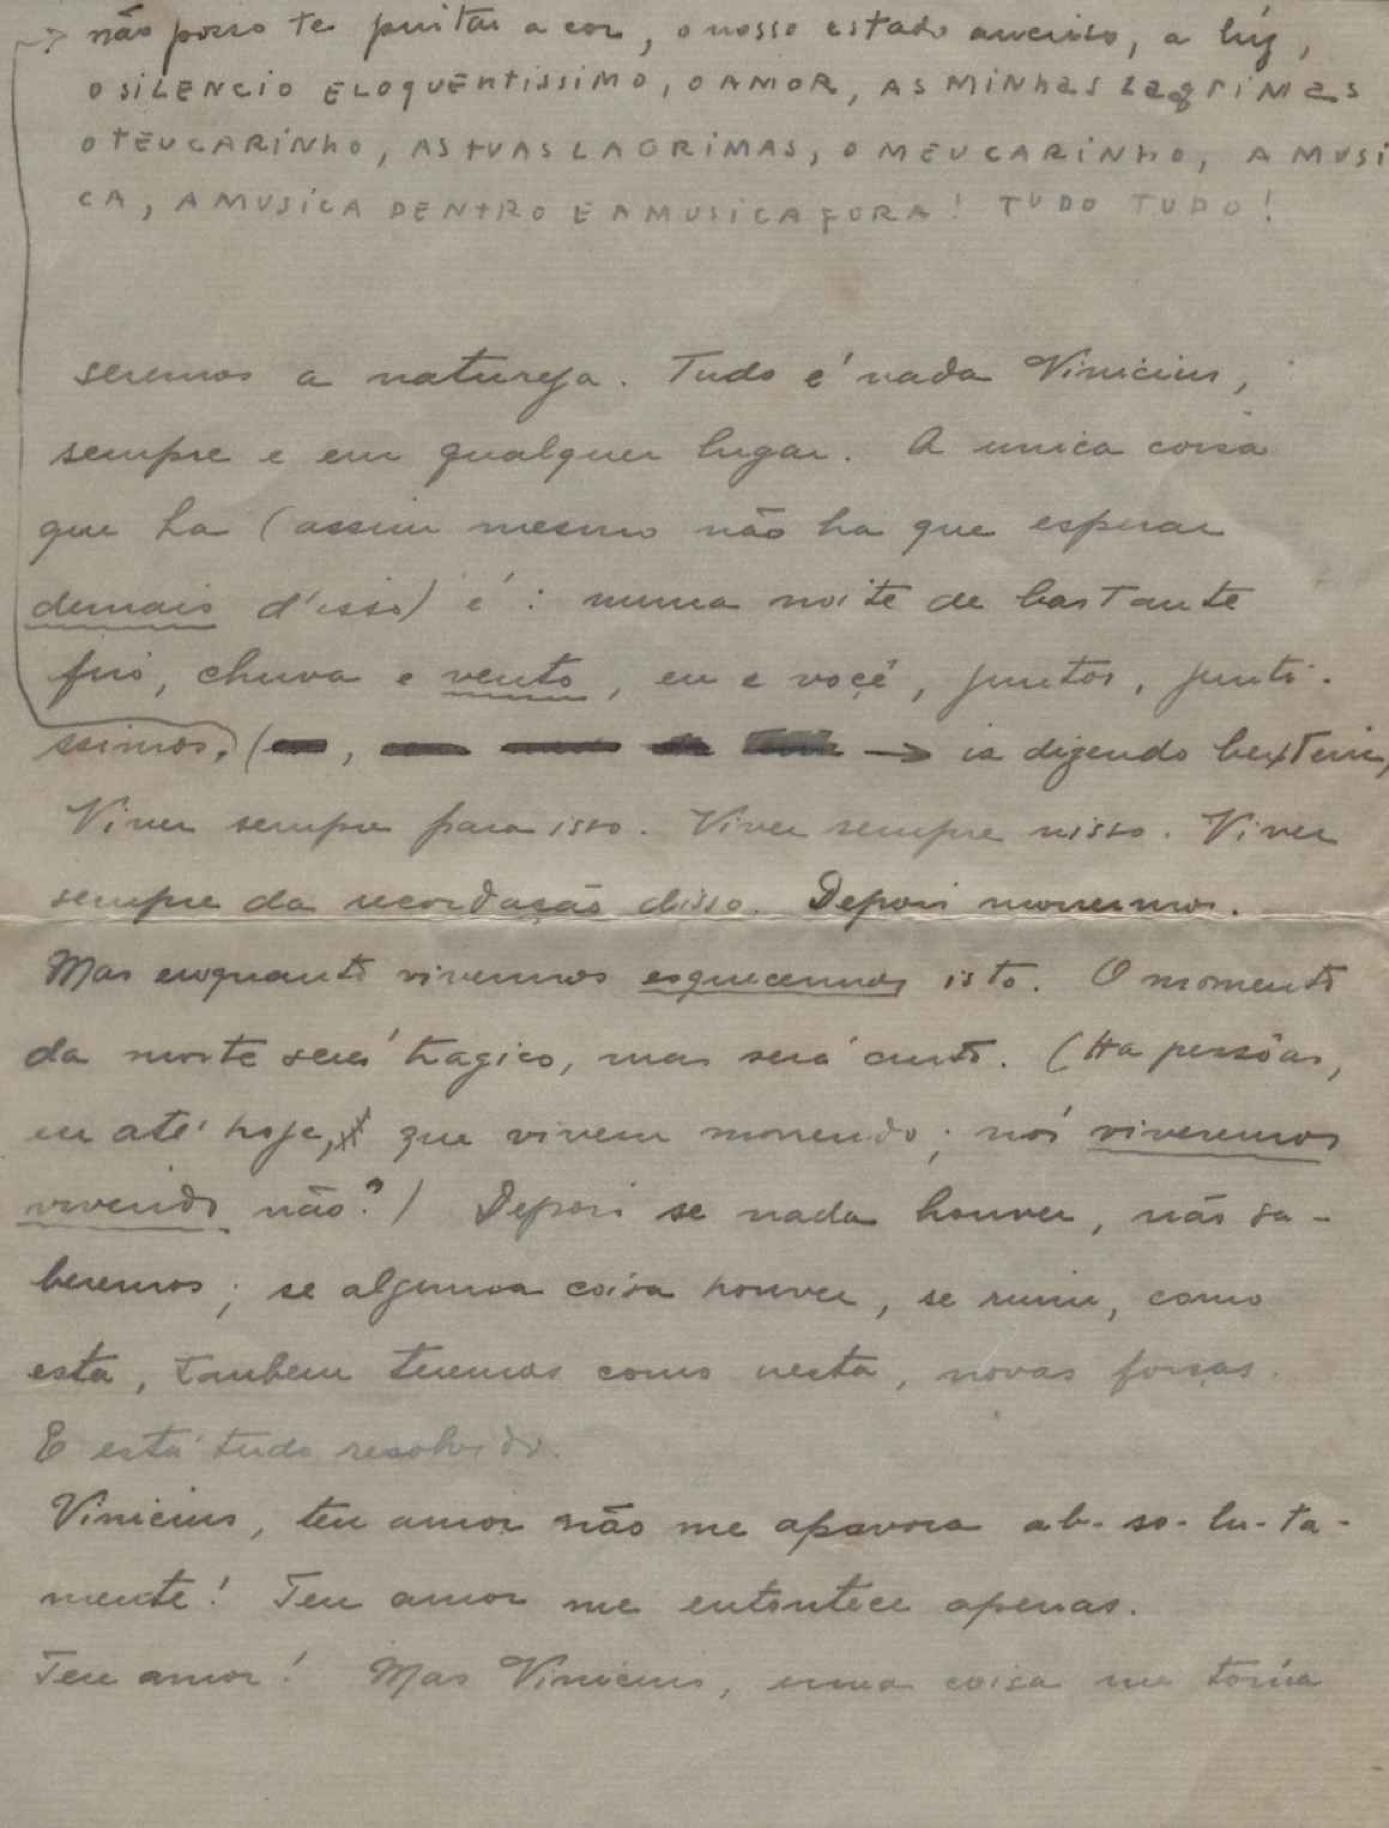 não posso te pintar a cor, o nosso estado, a lúz,
O SILENCIO ELOQUENTISSIMO, O AMOR, AS MINHAS LAGRIMAS
O TEU CARINHO, AS TUAS LAGRIMAS, O MEU CARINHO, A MUSI
CA, A MUSICA DENTRO E A MUSICA FORA! TUDO TUDO!
seremos a natureza. Tudo é nada Vinicius,
sempre e em qualquer lugar. A unica coisa
que ha (assim mesmo não ha que esperar
demais d'isso) é: numa noite de bastante
frio, chuva e vento, eu e você, juntos, junti-
ssimos. (→ ia dizendo
Viver sempre para isso. Viver sempre nisso. Viver
sempre da recordação disso. Depois morremos.
Mas enquanto vivermos esquecemos isto. O momento
da morte será tragico, mas será curto. (Ha pessôas,
eu até hoje, que vivem morrendo; nós viveremos
vivendo não?) Depois se nada houver, não sa-
beremos; se alguma coisa houver, se ruim, como
esta, tambem teremos como nesta, novas forças.
E está tudo resolvido.
Vinicius, teu amor não me apavora ab-so-lu-ta-
mente! Teu amor me entontece apenas.
Teu amor! Mas Vinicius, uma coisa me torna